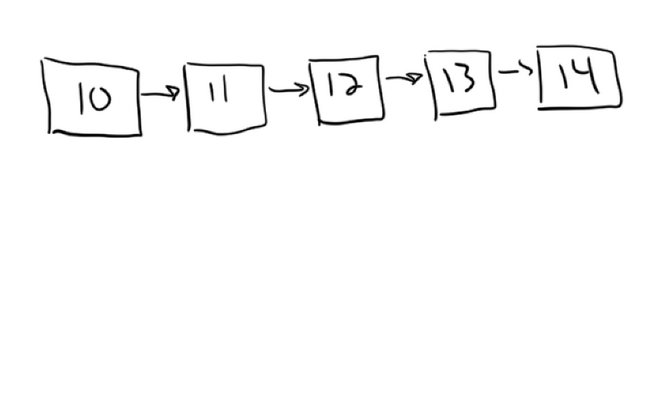 10 → 11 → 12 → 13 → 14